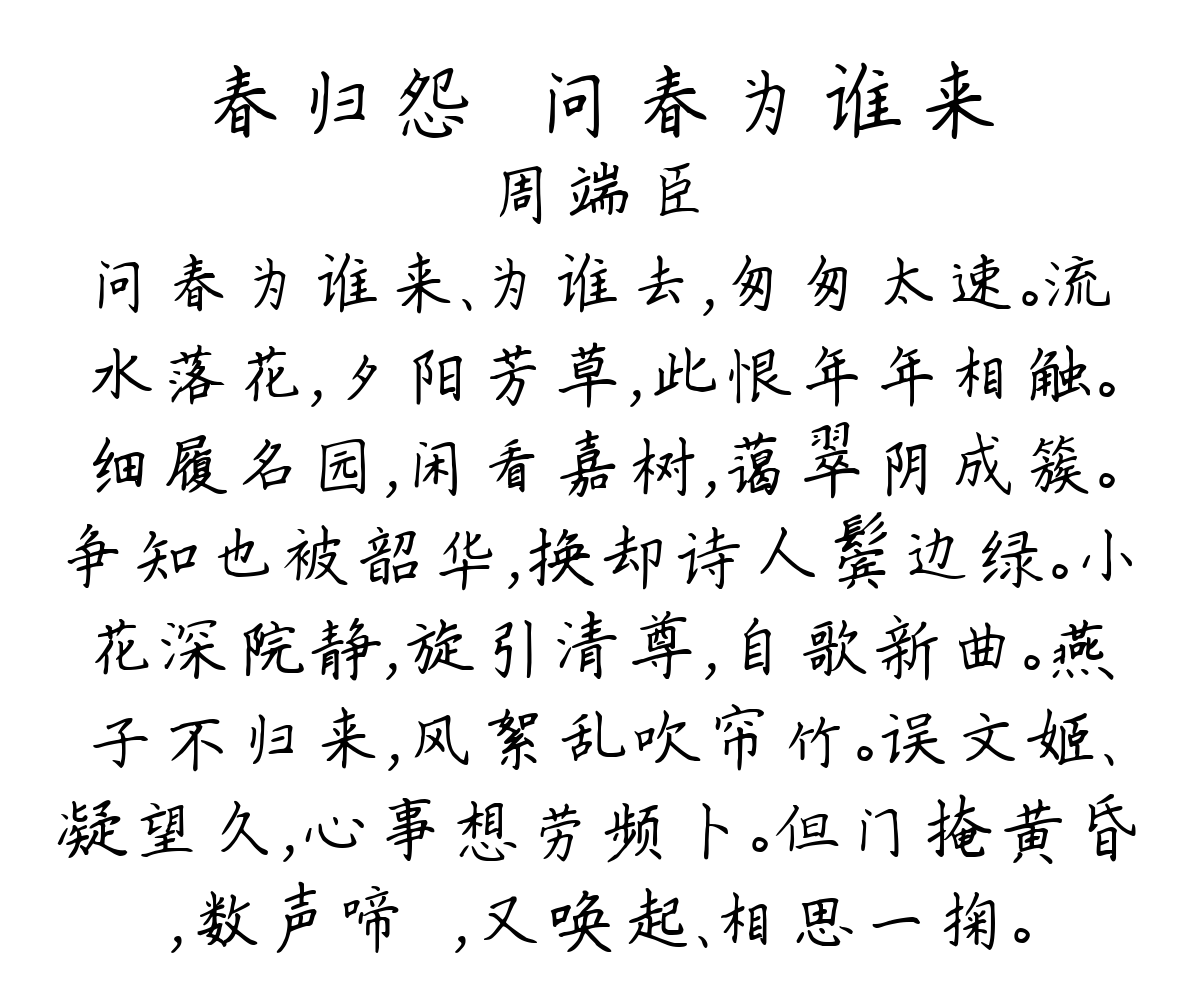 春归怨 问春为谁来
周端臣
问春为谁来、为谁去,匆匆太速。流
水落花,夕阳芳草,此恨年年相触。
细履名园,闲看嘉树,蔼翠阴成簇。
争知也被韶华,换却诗人鬓边绿。小
花深院静,旋引清尊,自歌新曲。燕
子不归来,风絮乱吹帘竹。误文姬、
凝望久,心事想劳频卜。但门掩黄昏
,数声啼 ,又唤起、相思一掬。